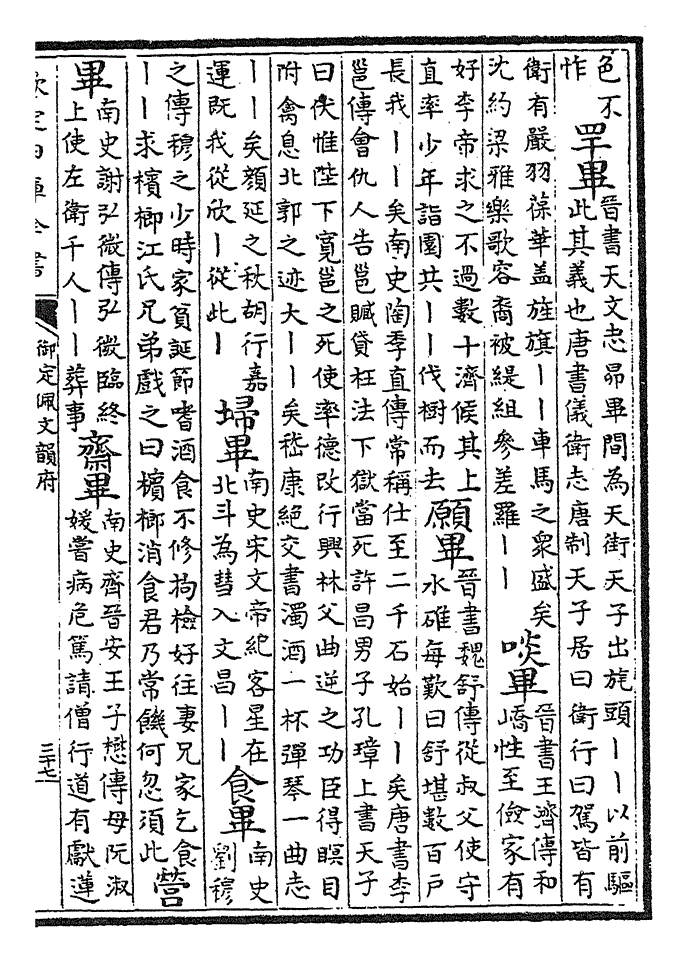 色不
怍
罕畢
晉書天文志昴畢間為天街天子出旄頭丨丨以前驅
此其義也唐書儀衛志唐制天子居曰衛行曰駕皆有
衛有嚴羽葆華盖旌旗丨丨車馬之衆盛矣
沈約梁雅樂歌容裔被緹組參差羅丨丨
啖畢
晉書王濟傳和
嶠性至儉家有
好李帝求之不過數十濟候其上
直率少年詣園共丨丨伐樹而去
願畢
晉書魏舒傳從叔父使守
水碓每歎曰舒堪數百戶
長我丨丨矣南史陶季直傳常稱仕至二千石始丨丨矣唐書李
邕傳會仇人告邕贓貸枉法下獄當死許昌男子孔璋上書天子
曰伏惟陛下寬邕之死使率德改行興林父曲逆之功臣得瞑目
附禽息北郭之迹大丨丨矣嵇康絶交書濁酒一杯彈琴一曲志
丨丨矣顔延之秋胡行嘉
運既我從欣丨從此丨
埽畢
南史宋文帝紀客星在
北斗為彗入文昌丨丨
食畢
南史
劉穆
之傳穆之少時家貧誕節嗜酒食不修拘檢好往妻兄家乞食
丨丨求檳榔江氏兄弟戲之曰檳榔消食君乃常饑何忽須此
營
畢
南史謝弘微傳弘微臨終
上使左衛千人丨丨葬事
齋畢
南史齊晉安王子懋傳母阮淑
媛嘗病危篤請僧行道有獻蓮
欽定四庫全書
御定佩文韻府
三十七